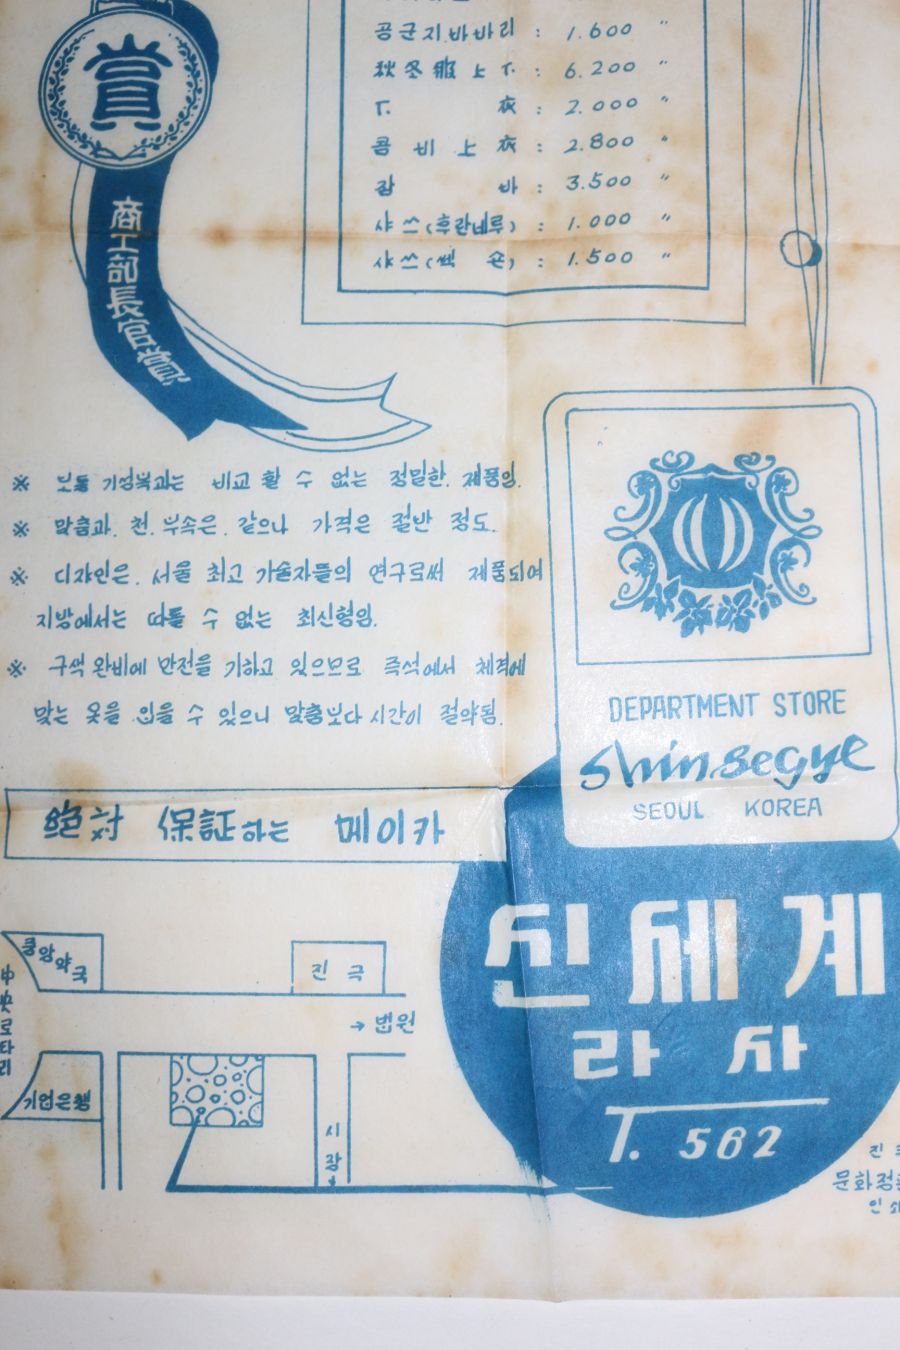 賞
商工部長官賞
공군지바바리 : 1.600 〃
秋冬服上下 : 6.200 〃
下 衣 : 2.000 〃
콤비上衣 : 2.800 〃
잠 바 : 3.500 〃
샤쓰(후란네루) : 1.000 〃
샤쓰(쎅 손) : 1.500 〃
※ 보통 기성복과는 비교 할 수 없는 정밀한. 제품임.
※ 맞춤과. 천. 부속은. 같으나 가격은 절반 정도.
※ 디자인은. 서울 최고 기술자들의 연구로써 제품되여
지방에서는 따를 수 없는 최신형임.
※ 구색 완비에 만전을 기하고 있으므로 즉석에서 체격에
맞는 옷을 입을 수 있으니 맞춤보다 시간이 절약됨.
DEPARTMENT STORE
Shinsegye
SEOUL KOREA
絶対 保証하는 메이카
중앙약국
中央로타리
기업은행
진 극
→ 법원
시장
신세계
라사
T. 562
문화정